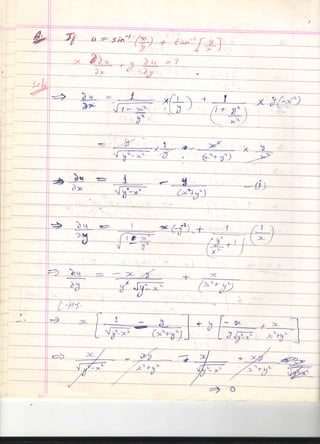 Q. If u = sin⁻¹(x/y) + tan⁻¹[y/x]
x ∂u/∂x + y ∂u/∂y = ?
Solⁿ
⇒ ∂u/∂x = 1/√(1 - x²/y²) × (1/y) + 1/(1 + y²/x²) × y(-x⁻²)
= y/√(y²-x²) × 1/y - x²/(x²+y²) × y/x²
⇒ ∂u/∂x = 1/√(y²-x²) - y/(x²+y²) —(1)
⇒ ∂u/∂y = 1/√(1 - x²/y²) × (-y⁻²) + 1/(y²/x² + 1) (1/x)
⇒ ∂u/∂y = -x y/(y² √(y²-x²)) + x/(x²+y²)
L.H.S.
∴ x [1/√(y²-x²) - y/(x²+y²)] + y [-x/(y√(y²-x²)) + x/(x²+y²)]
⇒ x/√(y²-x²) - xy/(x²+y²) - x/√(y²-x²) + xy/(x²+y²)
⇒ 0